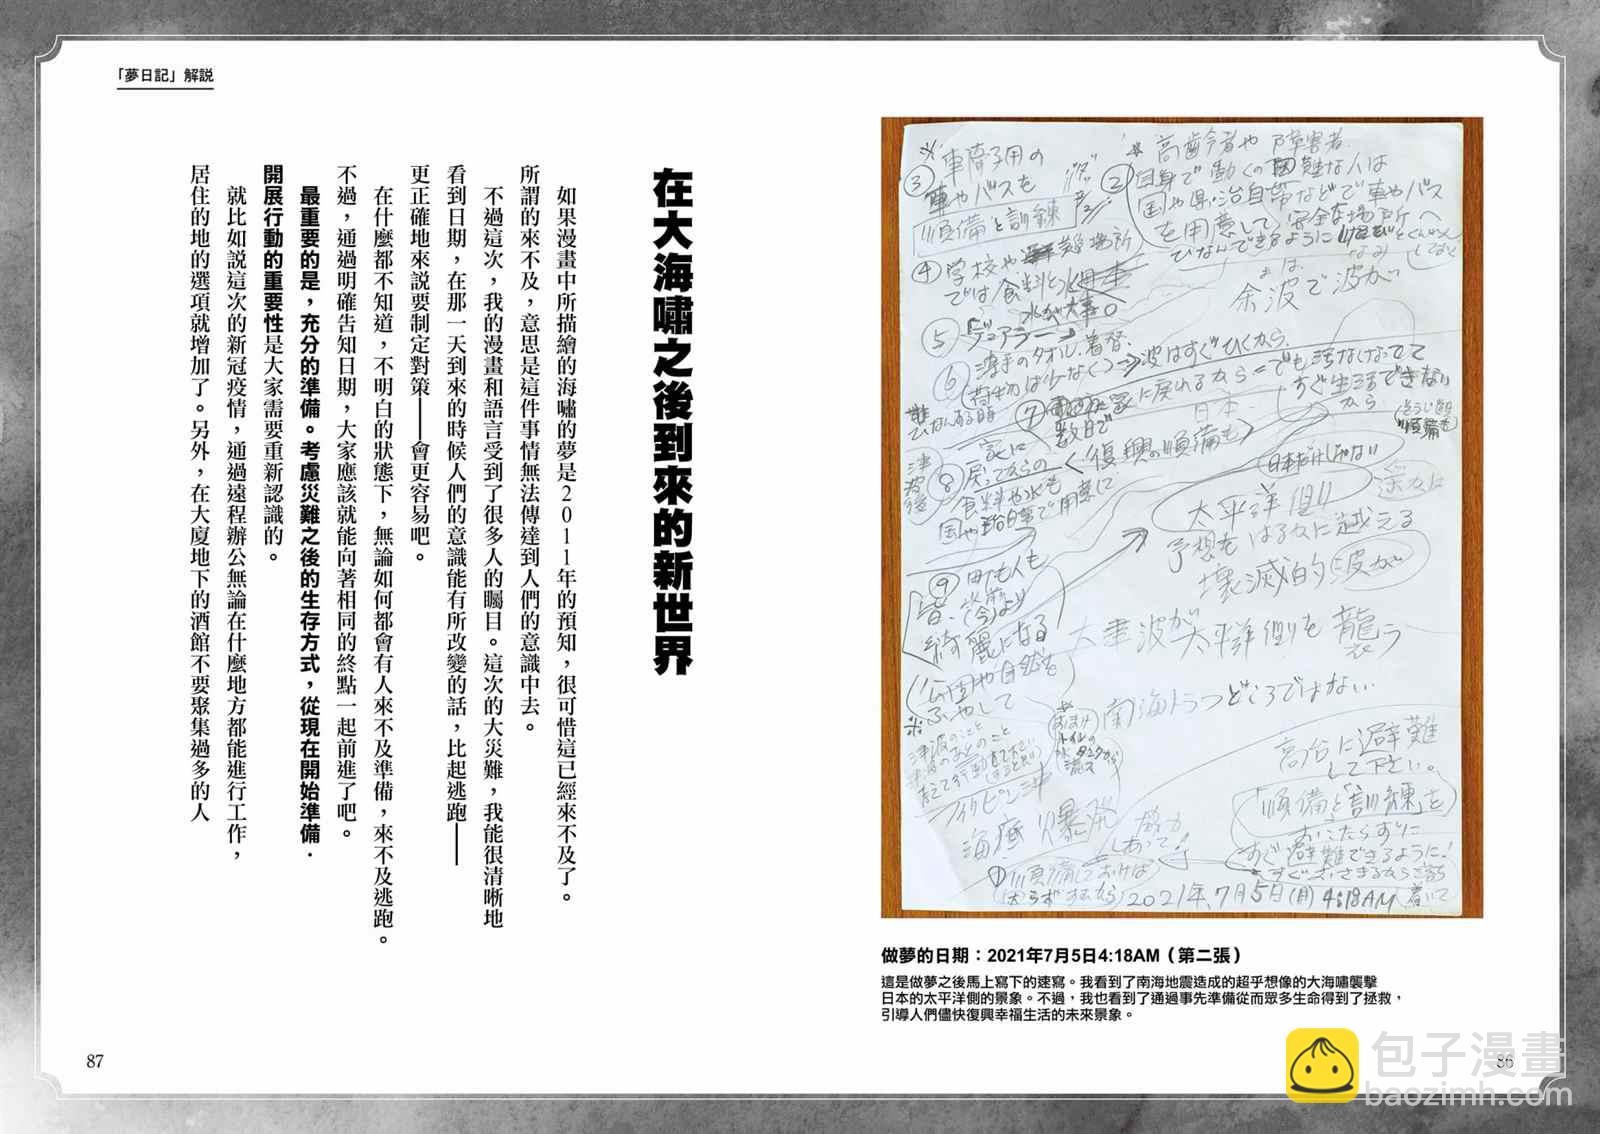 「夢日記」解説
※高齢者や障害者
②自身で動くの困難な人は
国や県・治自帯などで車やバス
を用意して、安全な場所へ
ひなんできるように
余波で波が
※車椅子用の
③車やバスを
順備と訓練
④学校や
では食料と水
水が大事。
⑥薄手のタオル、着替
荷物は少なく
波はすぐひくから
⑦
数日で
家に戻れるから
でも
すぐ生活できない
から
復興の順備も
日本だけじゃない
⑧家に
戻ってからの
食料や水も
国や
で用意に
太平洋側
予想をはるかに越える
壊滅的波が
⑨町も人も
皆
綺麗になる
公園や自然を
ふやして
大津波が太平洋側を襲う
南海トラフどころではない
高台に避難
して下さい。
「順備と「訓練」を
おこたらずに
すぐ避難できるように!
フィリピン沖
海底爆発
①順備しておけば
2021年7月5日(月)4:18AM
做夢的日期：2021年7月5日4:18AM（第二張）
這是做夢之後馬上寫下的速寫。我看到了南海地震造成的超乎想像的大海嘯襲擊
日本的太平洋側的景象。不過，我也看到了通過事先準備從而眾多生命得到了拯救，
引導人們儘快復興幸福生活的未來景象。
86
在大海嘯之後到來的新世界
如果漫畫中所描繪的海嘯的夢是2011年的預知，很可惜這已經來不及了。
所謂的來不及，意思是這件事情無法傳達到人們的意識中去。
不過這次，我的漫畫和語言受到了很多人的矚目。這次的大災難，我能很清晰地
看到日期，在那一天到來的時候人們的意識能有所改變的話，比起逃跑——
更正確地來說要制定對策——會更容易吧。
在什麼都不知道，不明白的狀態下，無論如何都會有人來不及準備，來不及逃跑。
不過，通過明確告知日期，大家應該就能向著相同的終點一起前進了吧。
最重要的是，充分的準備。考慮災難之後的生存方式，從現在開始準備．
開展行動的重要性是大家需要重新認識的。
就比如説這次的新冠疫情，通過遠程辦公無論在什麼地方都能進行工作，
居住的地的選項就增加了。另外，在大廈地下的酒館不要聚集過多的人
87
包子漫畫
baozimh.com